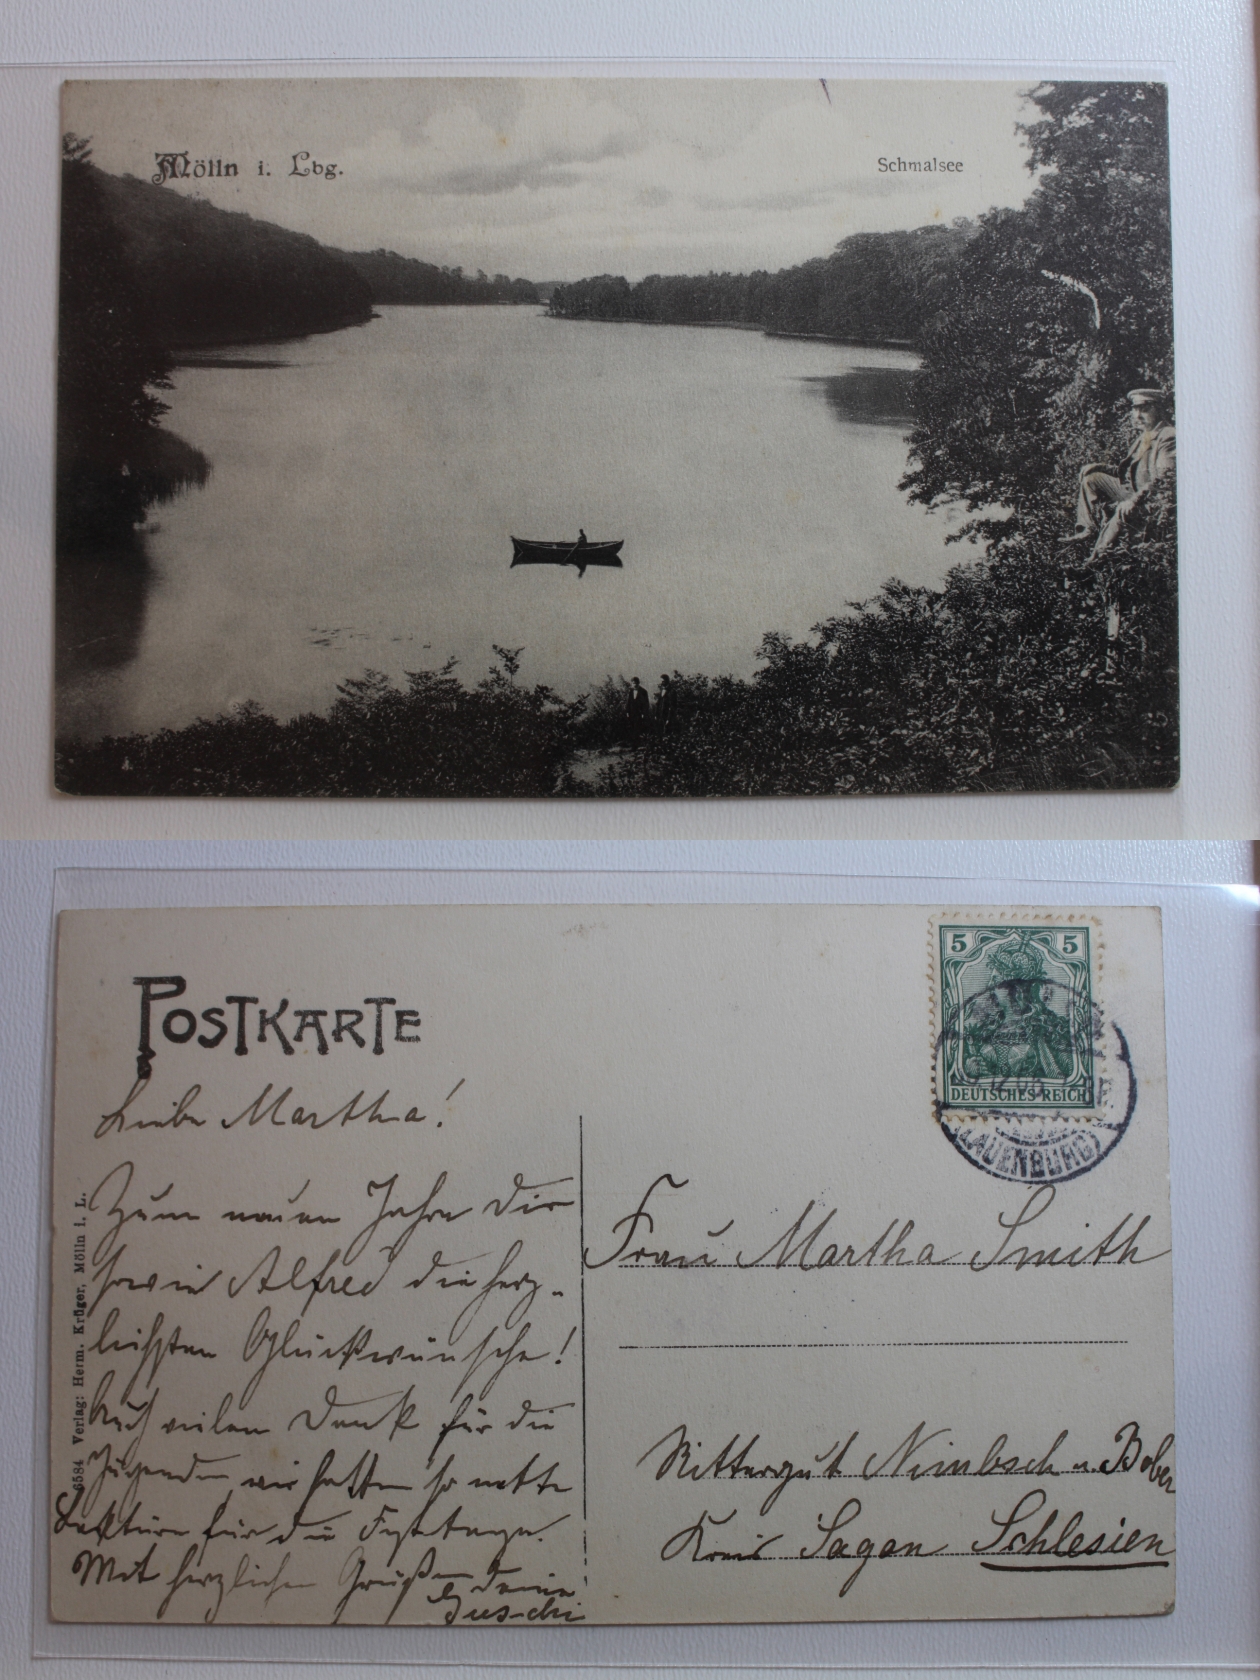 Mölln i. Lbg.
Schmalsee
POSTKARTE
5 5
DEUTSCHES REICH
(LAUENBURG)
6584 Verlag: Herm. Krüger, Mölln i. L.
Liebe Martha!
Zum neuen Jahre Dir
sowie Alfred die herz-
lichsten Glückwünsche!
Auch vielen Dank für die
wir hatten so nette
Lektüre für die Festtage.
Mit herzlichen Grüßen Deine
Frau Martha Smith
Rittergut Nimbsch a. Bober
Kreis Sagan Schlesien